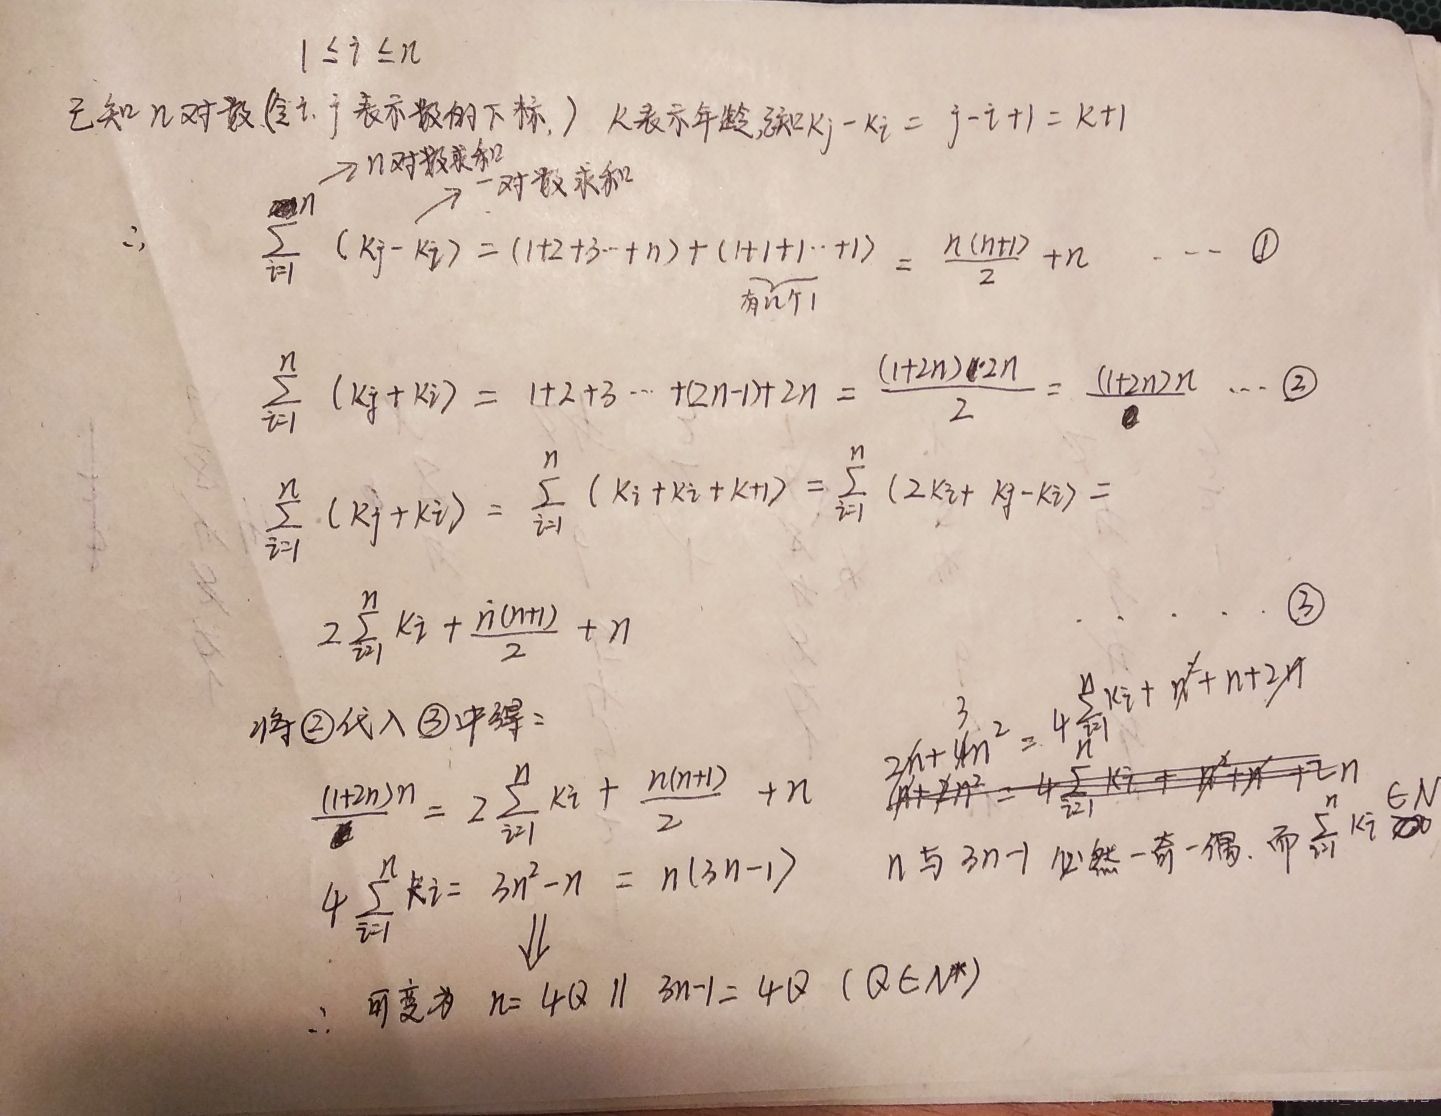 1 ≤ i ≤ n
已知n对数(令i、j表示数的下标,) K表示年龄,已知Kj-Ki = j-i+1 = K+1
→n对数求和
→一对数求和
∴ ∑_{i=1}^{n} (Kj-Ki) = (1+2+3…+n)+(1+1+1…+1) = n(n+1)/2 +n …… ①
有n个1
∑_{i=1}^{n} (Kj+Ki) = 1+2+3…+(2n-1)+2n = (1+2n)·2n/2 = (1+2n)n … ②
∑_{i=1}^{n} (Kj+Ki) = ∑_{i=1}^{n} (Ki+Ki+K+1) = ∑_{i=1}^{n} (2Ki+Kj-Ki) =
2∑_{i=1}^{n} Ki + n(n+1)/2 + n …… ③
将②代入③中得:
2n+4n² = 4∑_{i=1}^{n} Ki + n²+n+2n
3
(1+2n)n = 2∑_{i=1}^{n} Ki + n(n+1)/2 + n
4∑_{i=1}^{n} Ki = 3n²-n = n(3n-1)
n与3n-1必然一奇一偶.而∑_{i=1}^{n} Ki ∈N
⇓
∴ 可变为 n=4Q || 3n-1=4Q (Q∈N*)